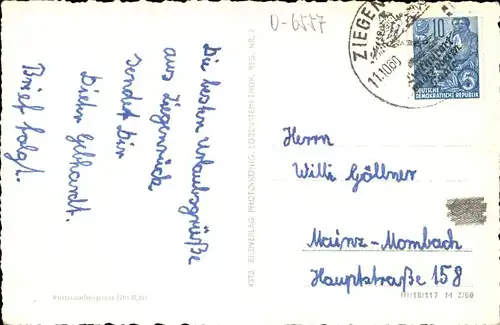 Die besten Urlaubsgrüße
aus Ziegenrück
sendet Dir
Dieter Gebhardt.
Brief folgt.
Verbraucherpreis DM 0,20
4273 BILDVERLAG PHOTO-KÖNIG, LOBENSTEIN THÜR. REG. NR. 2
U-6557
ZIEGEN
11.10.60
10
DEUTSCHE
DEMOKRATISCHE REPUBLIK
5
Herrn
Willi Göllner
Mainz-Mombach
Hauptstraße 158
III/18/117 M 2/60